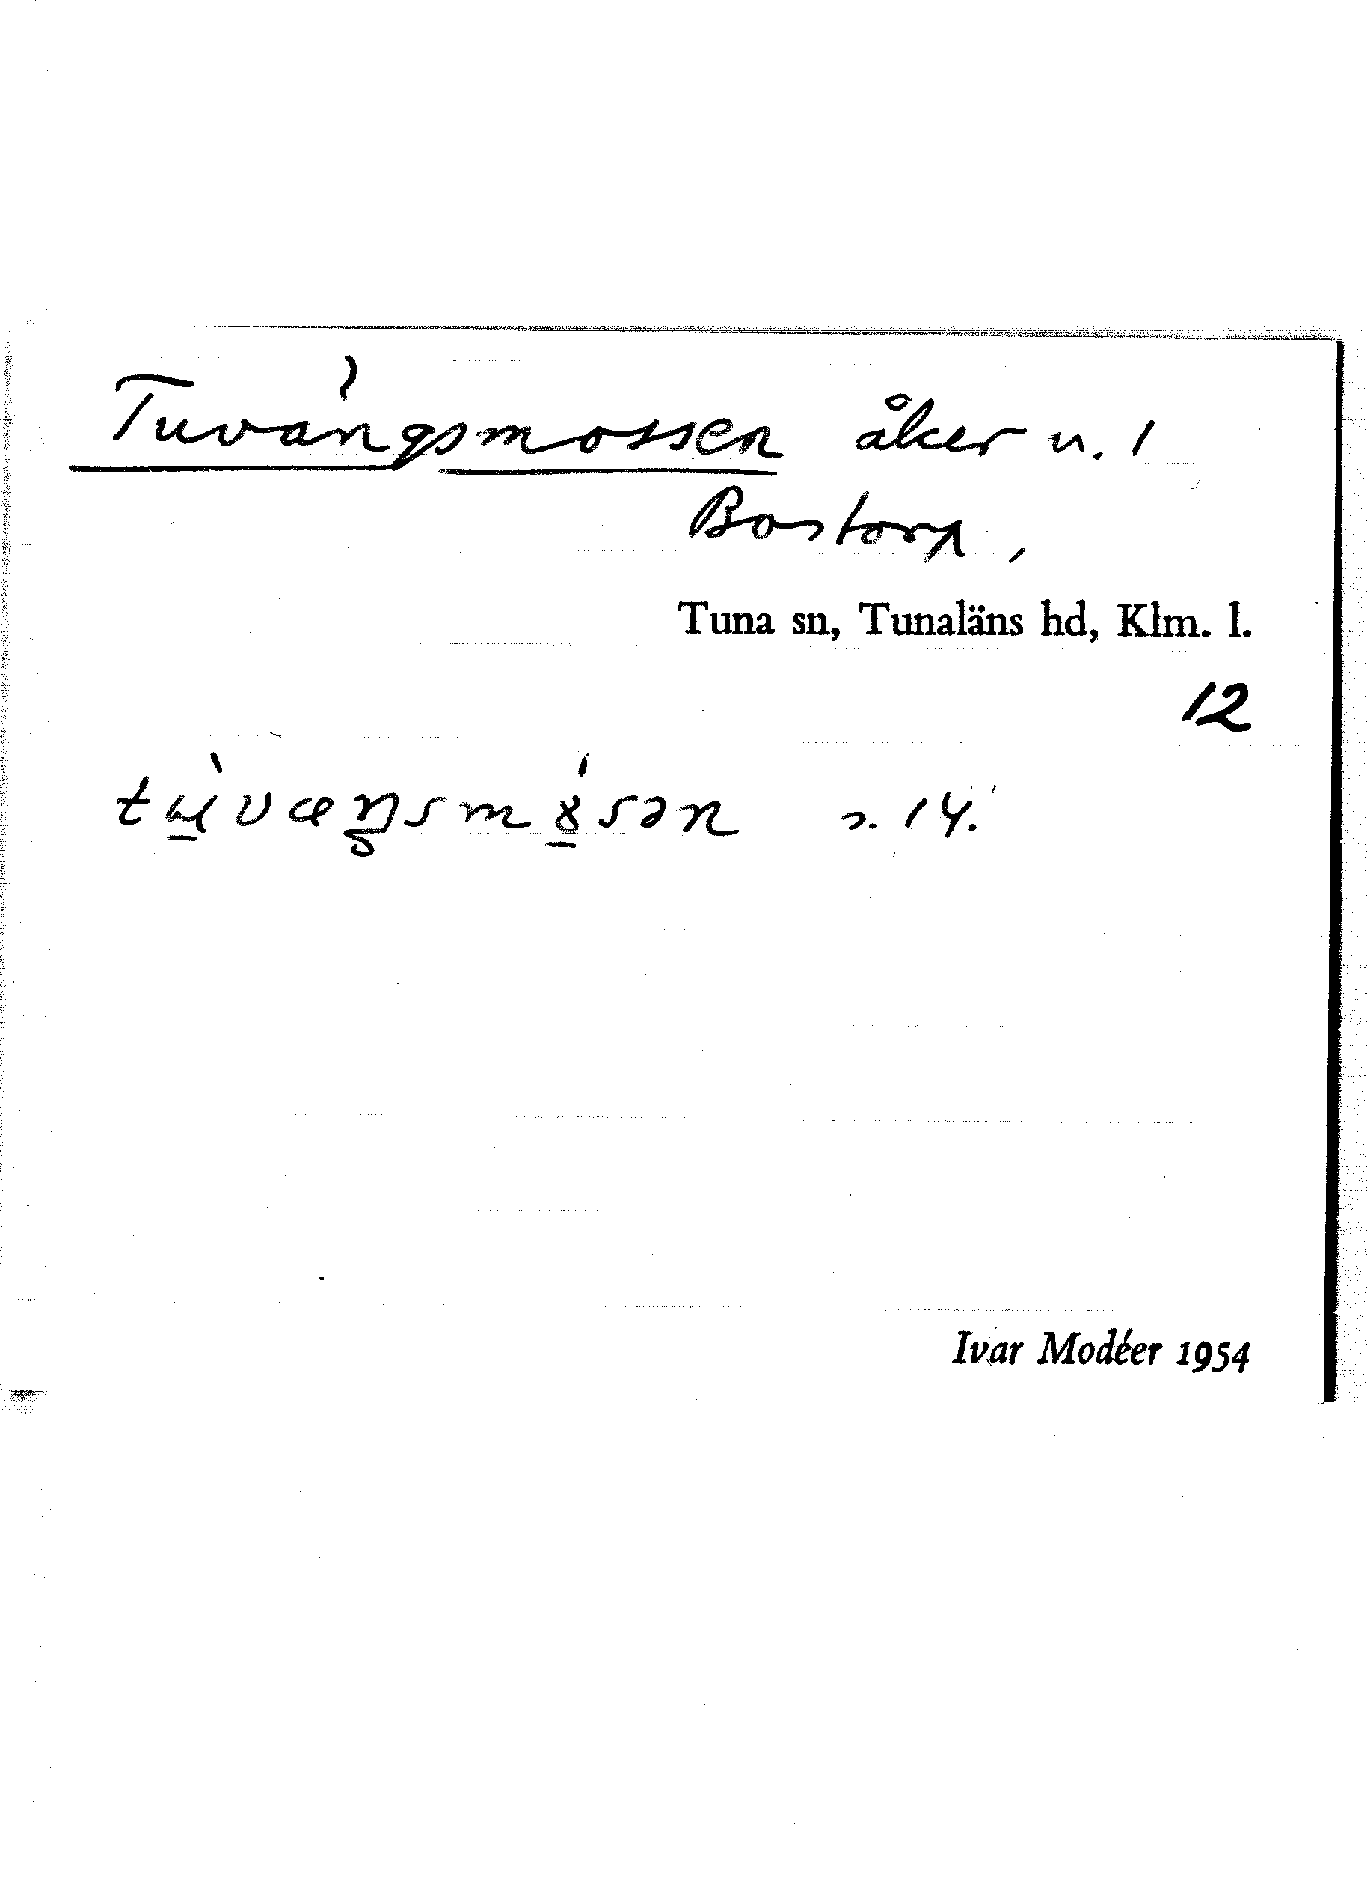 Tuvängsmossen åker n. 1
Bostorp,
Tuna sn, Tunaläns hd, Klm. l.
12
s. 14.
Ivar Modéer 1954